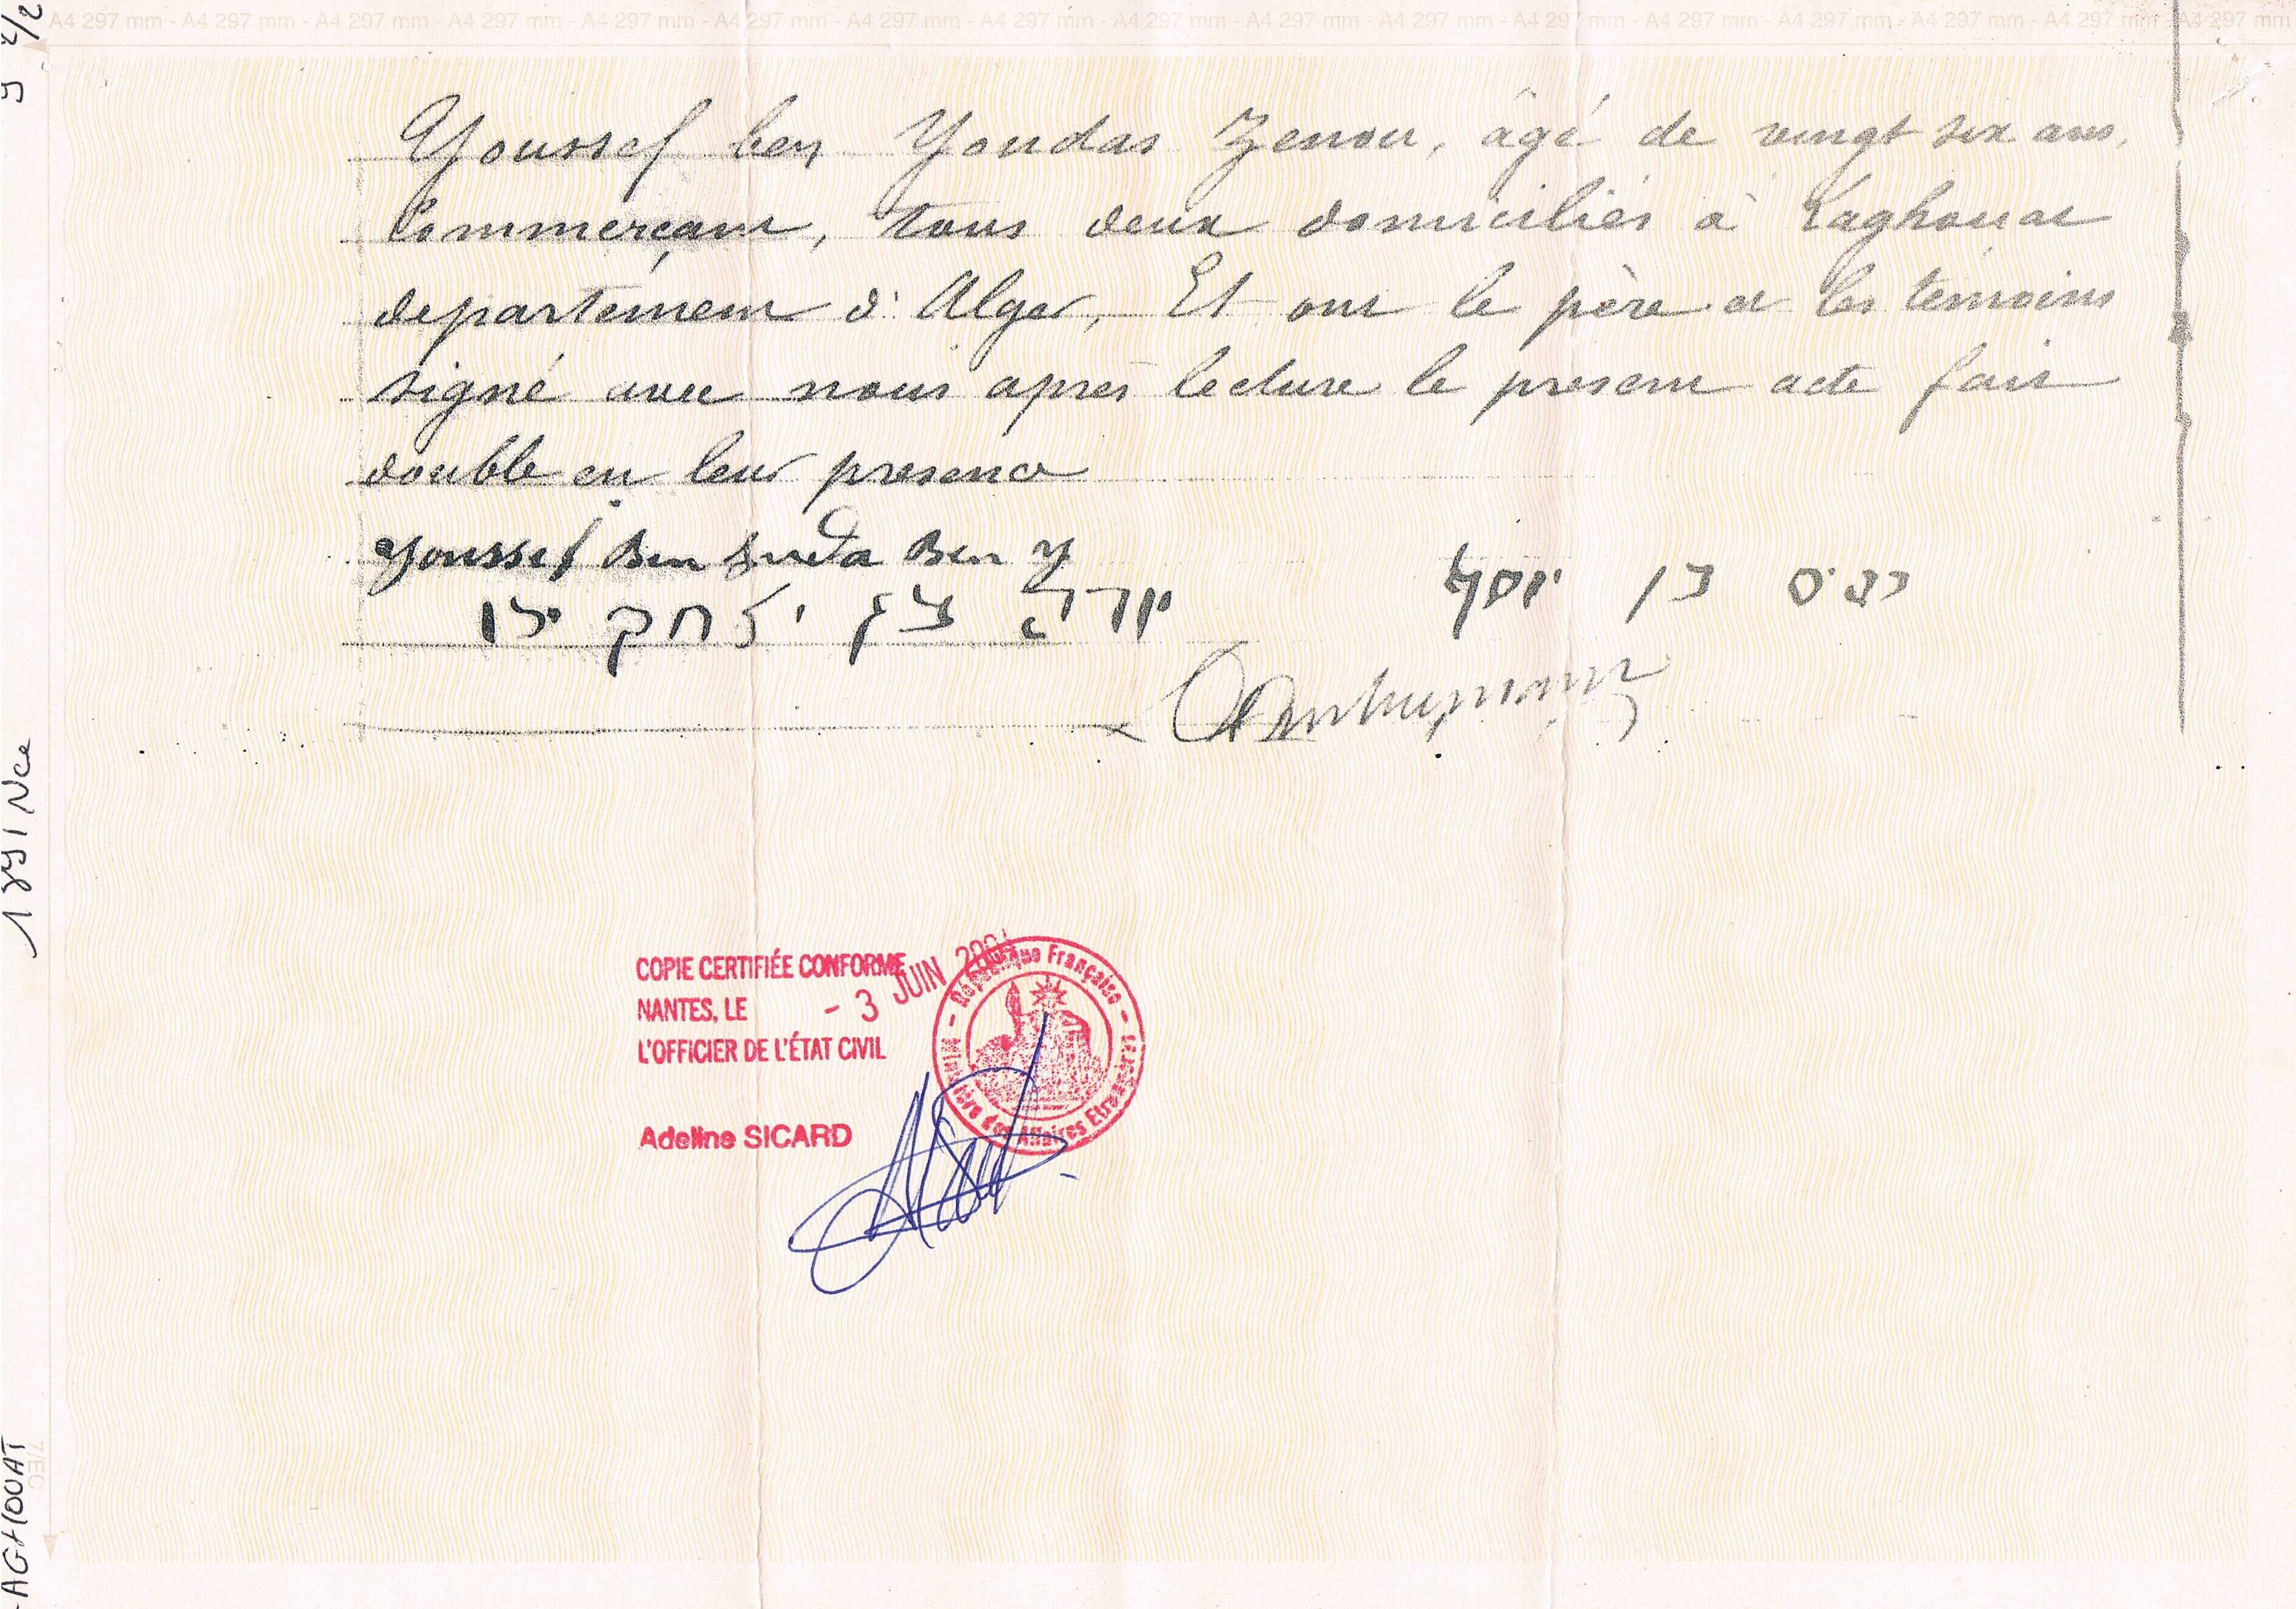 A4 297 mm - A4 297 mm - A4 297 mm - A4 297 mm - A4 297 mm - A4 297 mm - A4 297 mm - A4 297 mm - A4 297 mm - A4 297 mm - A4 297 mm - A4 297 mm - A4 297 mm - A4 297 mm - A4 297 mm - A4 297 mm - A4 297 mm
Youssef ben Youdas Zenou, âgé de vingt six ans,
Commerçant, tous deux domiciliés à Laghouat
departement d'Alger, Et ont le père et les témoins
signé avec nous après lecture le present acte fait
double en leur presence
Youssef Ben Ben y
יודה בן יצחק
בן יוסף
COPIE CERTIFIÉE CONFORME
NANTES, LE - 3 JUIN
L'OFFICIER DE L'ÉTAT CIVIL
Adeline SICARD
République Française - Ministère des Affaires Etrangères -
AGHOUAT
1891 Nce
9 2/2
7/EC